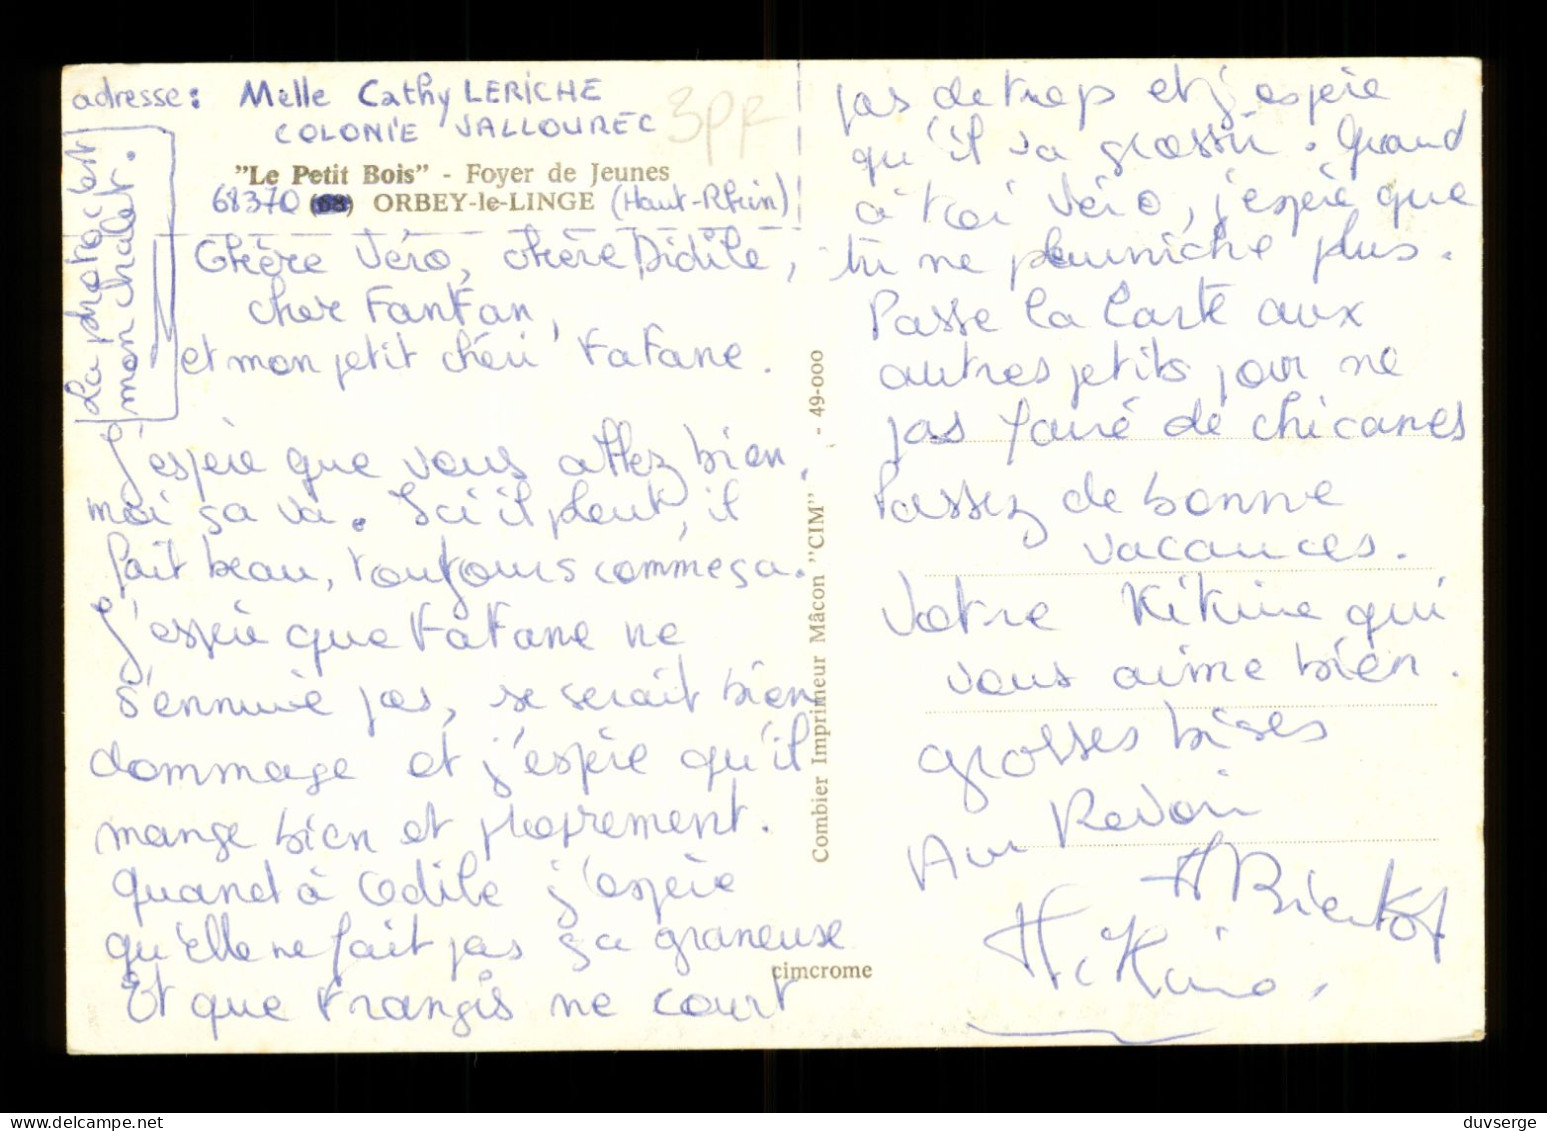 adresse: Melle Cathy LERICHE
COLONIE VALLOUREC
3PF
"Le Petit Bois" - Foyer de Jeunes
68370 (68) ORBEY-le-LINGE (Haut-Rhin)
La photo est
mon chalet.
Chère Véro, chère Didile,
cher FanFan,
et mon petit chéri FaFane.
J'espère que vous allez bien.
moi ça va. Ici il pleut, il
fait beau, toujours comme ça.
J'espère que FaFane ne
s'ennuie pas, se serait bien
dommage et j'espère qu'il
mange bien et proprement.
Quand à Odile j'espère
qu'elle ne fait pas sa graneuse
Et que Frangis ne court
pas de trop et j'espère
qu'il va grossir. Quand
à toi Véro, j'espère que
tu ne pleurniche plus.
Passe la carte aux
autres petits pour ne
pas faire de chicanes
Passez de bonne
vacances.
Votre Kikine qui
vous aime bien.
grosses bises
Au Revoir
A Bientot
Kikine.
Combier Imprimeur Mâcon "CIM" - 49-000
cimcrome
duvserge